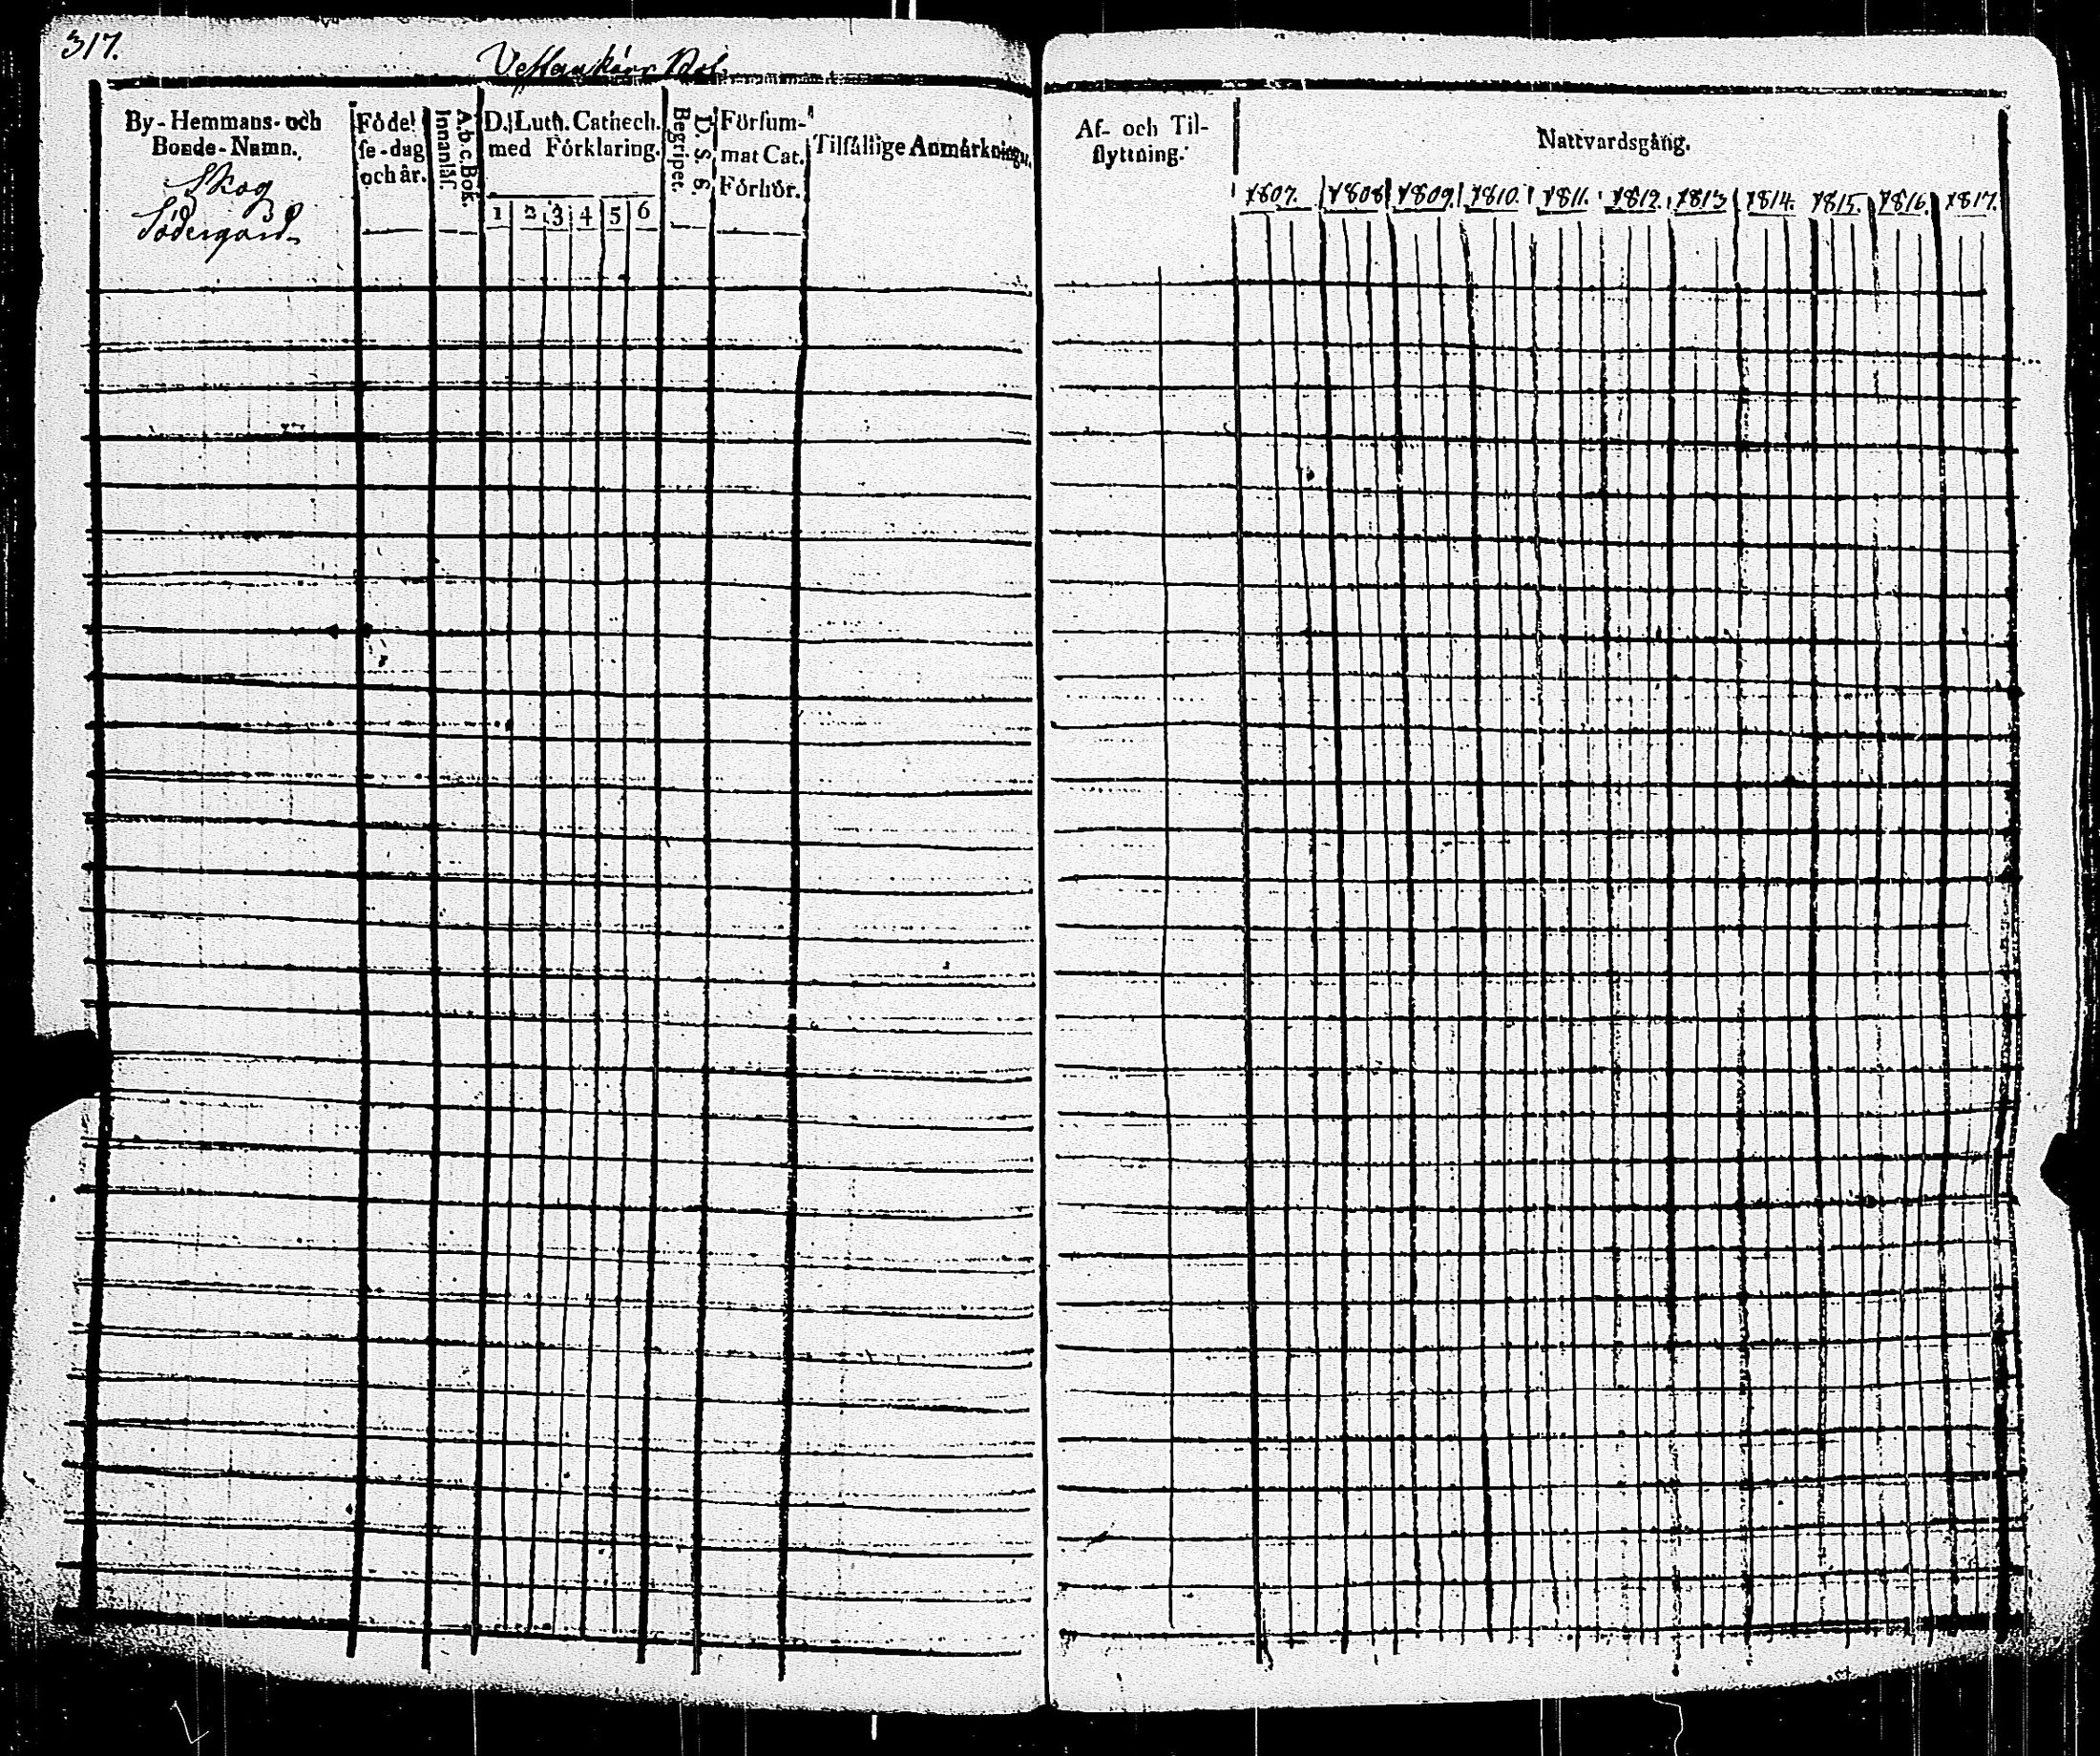 317.
Vestankärr Bol.
By-Hemmans- och
Bonde-Namn.
Skog
Södergård
Födel
se-dag
och år.
A.b.c.Bok.
Innanläs.
D. Luth. Cathech.
med Förklaring.
1 2 3 4 5 6
D. S. S.
Begripet.
Försum-
mat Cat.
Förhör.
Tilfällige Anmärkningar.
Af- och Til-
flyttning.
Nattvardsgång.
1807. 1808 1809. 1810. 1811. 1812. 1813 1814. 1815. 1816. 1817.